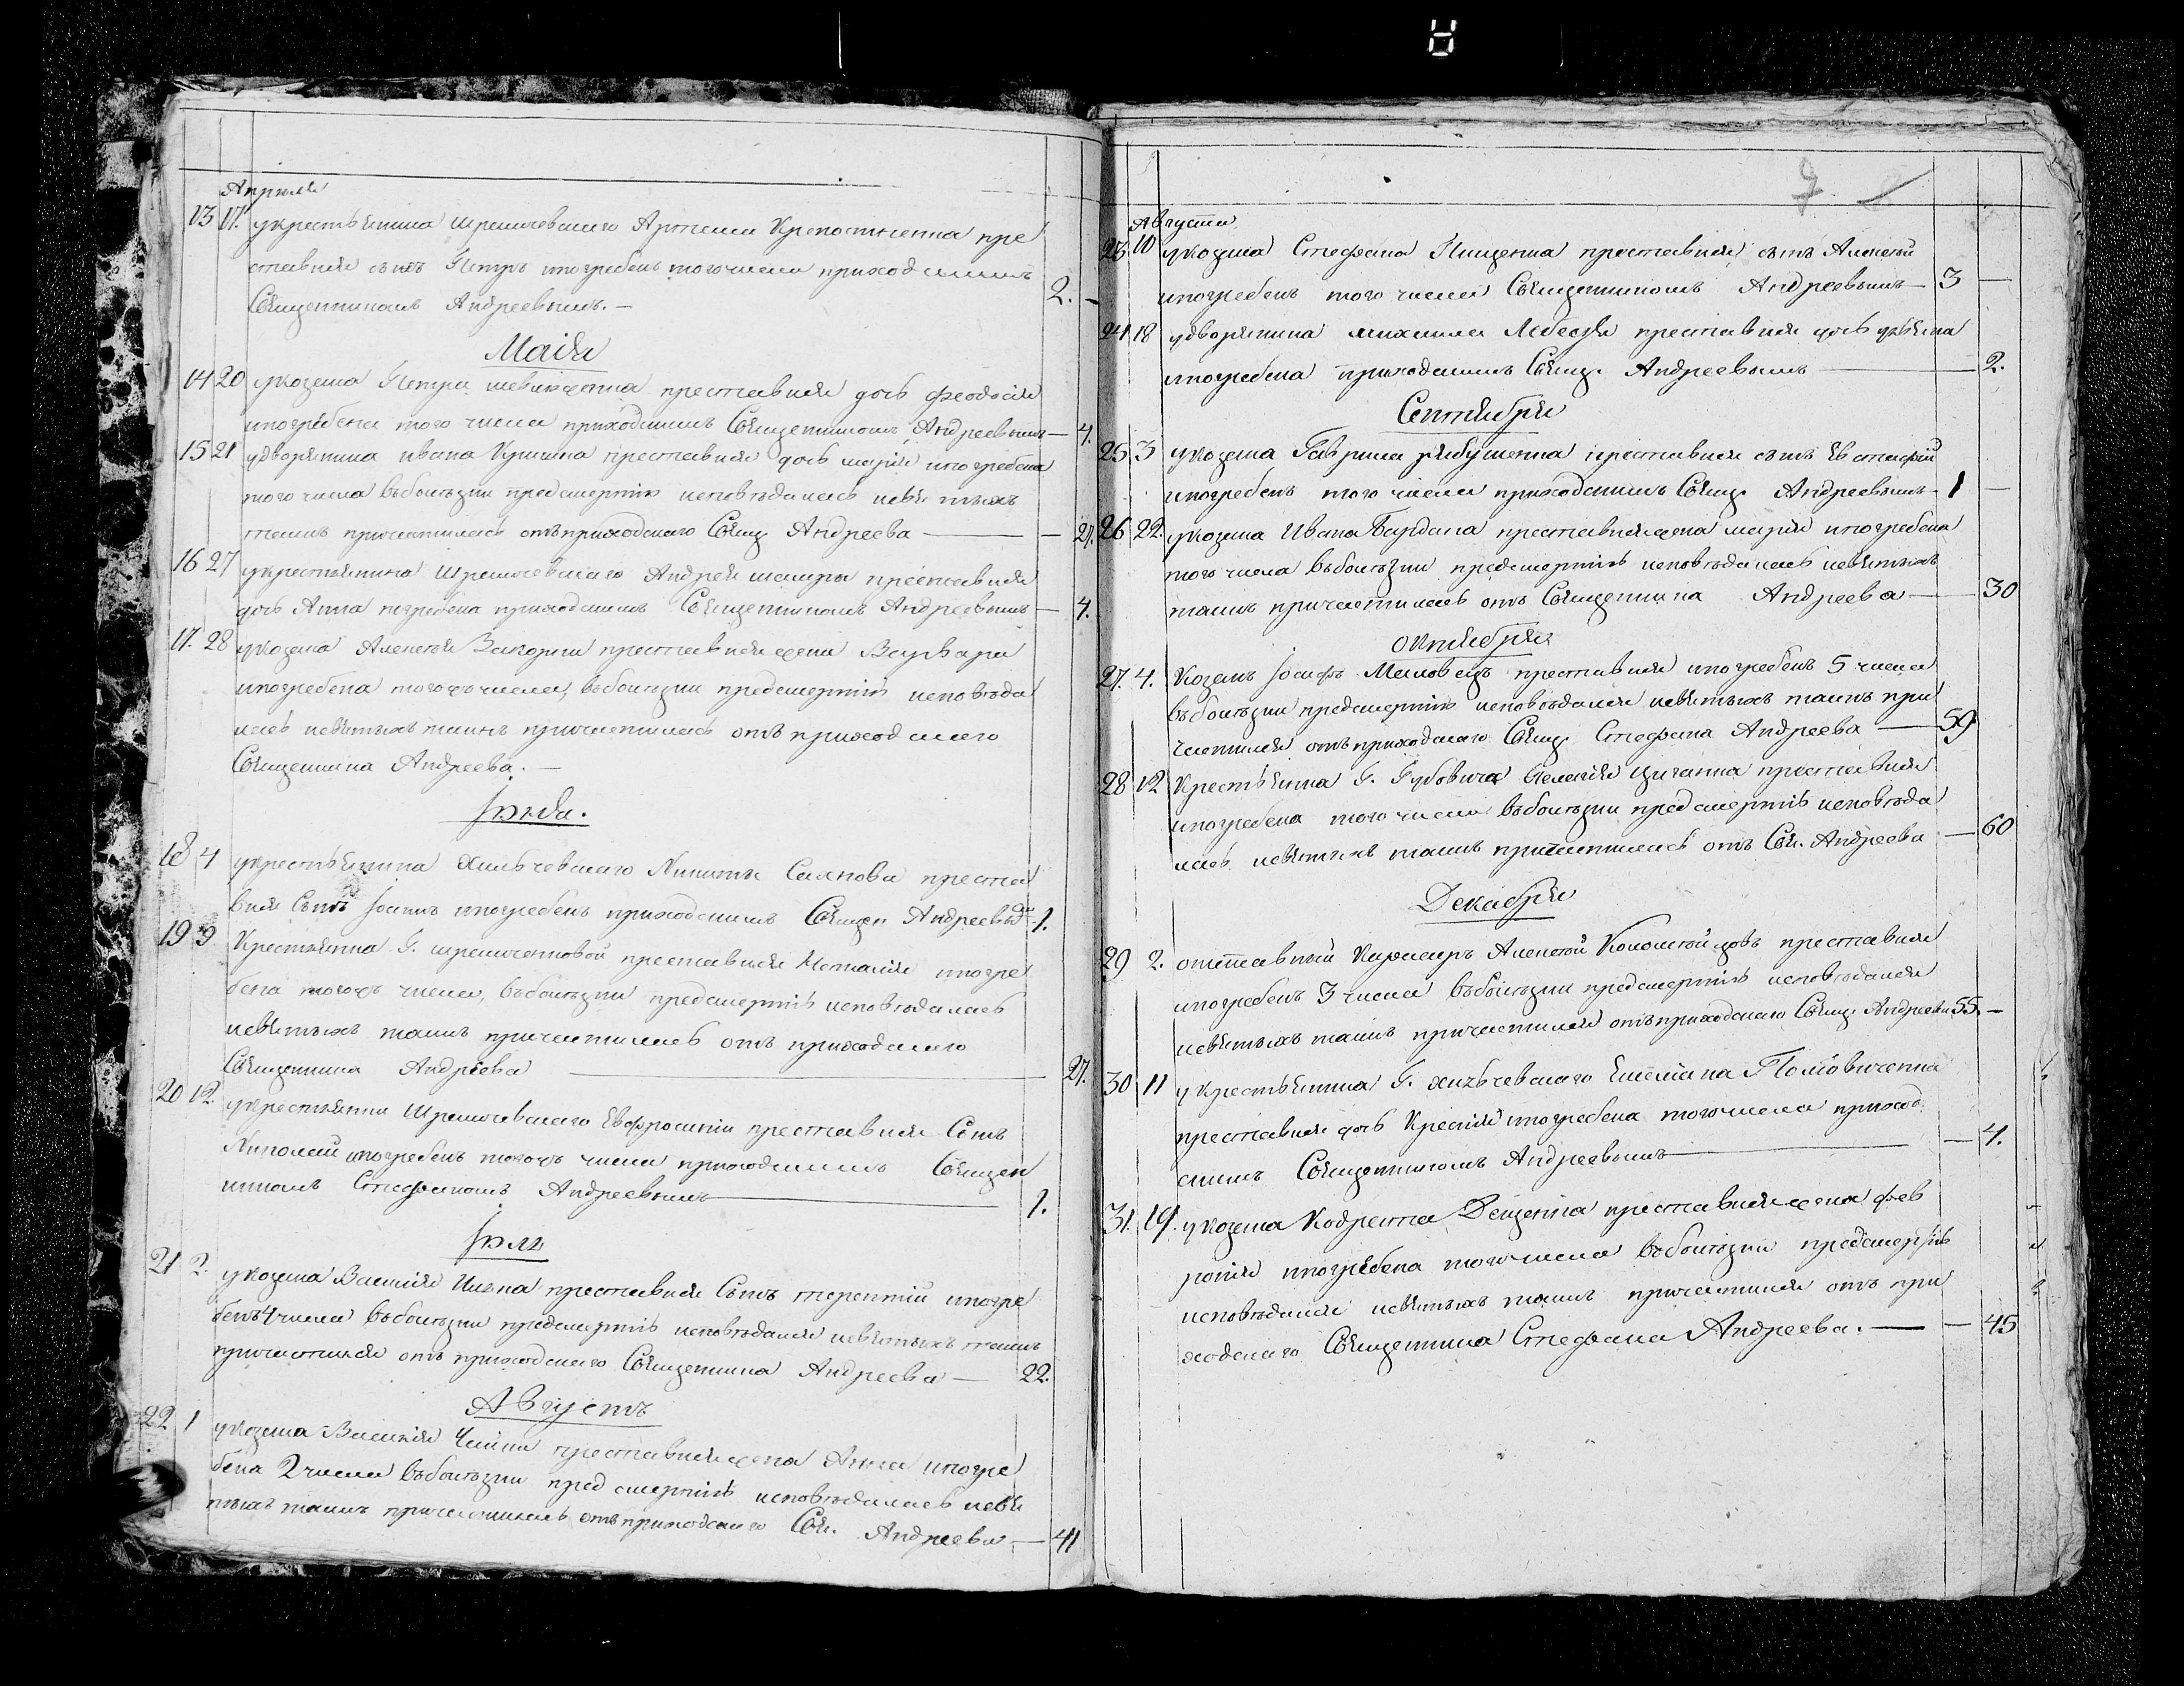 Априля
13 17. укрестьянина Артема Крепостненка пре
ставился сынъ Петръ ипогребенъ тогочисла приходскимъ
Священникомъ Андреевымъ. — 2. —
Маія
14 20 укозака Петра преставися дочь Феодосія
ипогребена того числа приходскимъ Священникомъ Андреевымъ — 4.
15 21 удворянина ивана преставися дочь марія ипогребена
того числа вболезни предсмертію исповѣдалась исвя тыхъ
таинъ причастилась отъприходскаго Свящ Андреева — 27.
16 27 укрестьянина Андрея преставися
дочь Анна погребена приходскимъ Священникомъ Андреевымъ — 4.
17. 28 укозака Алексѣя преставися жена Варвара
ипогребена тогожъ числа, вболезни предсмертію исповѣда
лась исвятыхъ таинъ причастилась отъ приходскаго
Священника Андреева. —
Іюня.
18 4 укрестьянина Никиты преста
вися Сынъ Іоаннъ ипогребенъ приходскимъ Священ Андреевы 1.
19 9 Крестьянка Г. преставися Наталія ипогре
бена тогожъ числа, вболезни предсмертію исповѣдалась
исвятыхъ таинъ причастилась отъ приходскаго
Священника Андреева — 27.
20 12. укрестьянки Евфросиніи преставися Сынъ
Николай ипогребенъ тогожъ числа приходскимъ Священ
никомъ Стефаномъ Андреевымъ — 1.
Іюль
21 2. укозака Василія преставися Сынъ терентій ипогре
бенъ 4 числа вболезни предсмертію исповѣдался исвятыхъ таинъ
причастился отъ приходскаго Священника Андреева — 22.
Августъ
22 1 укозака Василія преставися жена Анна ипогре
бена 2 числа вболезни пред смертію исповѣдалась исвя
тыхъ таинъ причастилась отъприходскаго Свя. Андреева — 41
9
Августа
23 10 укозака Стефана Пищенка преставися сынъ Алексѣй
ипогребенъ того числа Священникомъ Андреевымъ — 3 —
24 18 удворянина михаила преставися дочь
ипогребена приходскимъ Свящ. Андреевымъ — 2.
Сентября
25 3 укозака Гаврила рябушенка преставися сынъ Евстафій
ипогребенъ того числа приходскимъ Свящ. Андреевымъ — 1 —
26 22. укозака Ивана преставися жена марія ипогребена
того числа вболезни предсмертію исповѣдалась исвятыхъ
таинъ причастилась отъ Священника Андреева — 30
октября
27. 4. Козакъ Іосифъ преставися ипогребенъ 5 числа
вболезни предсмертію исповѣдался исвятыхъ таинъ при
частился отъприходскаго Свящ. Стефана Андреева — 59
28 12 Крестьянка Г. Пелагія преставися
ипогребена того числа вболезни предсмертію исповѣда
лась исвятыхъ таинъ причастилась отъ Свя. Андреева — 60
Декабря
29 2. отставный Алексѣй преставися
ипогребенъ 3 числа вболезни предсмертію исповѣдался
исвятыхъ таинъ причастился отъприходскаго Свящ. Андреева 55. —
30 11 укрестьянина Г. Емеліана
преставися дочь ипогребена тогочисла приход
скимъ Священникомъ Андреевымъ — 4.
31. 19. укозака Кодрата преставися жена фев
ронія ипогребена тогочисла вболезни предсмертію
исповѣдался исвятыхъ таинъ причастился отъ при
ходскаго Священника Стефана Андреева. — 45